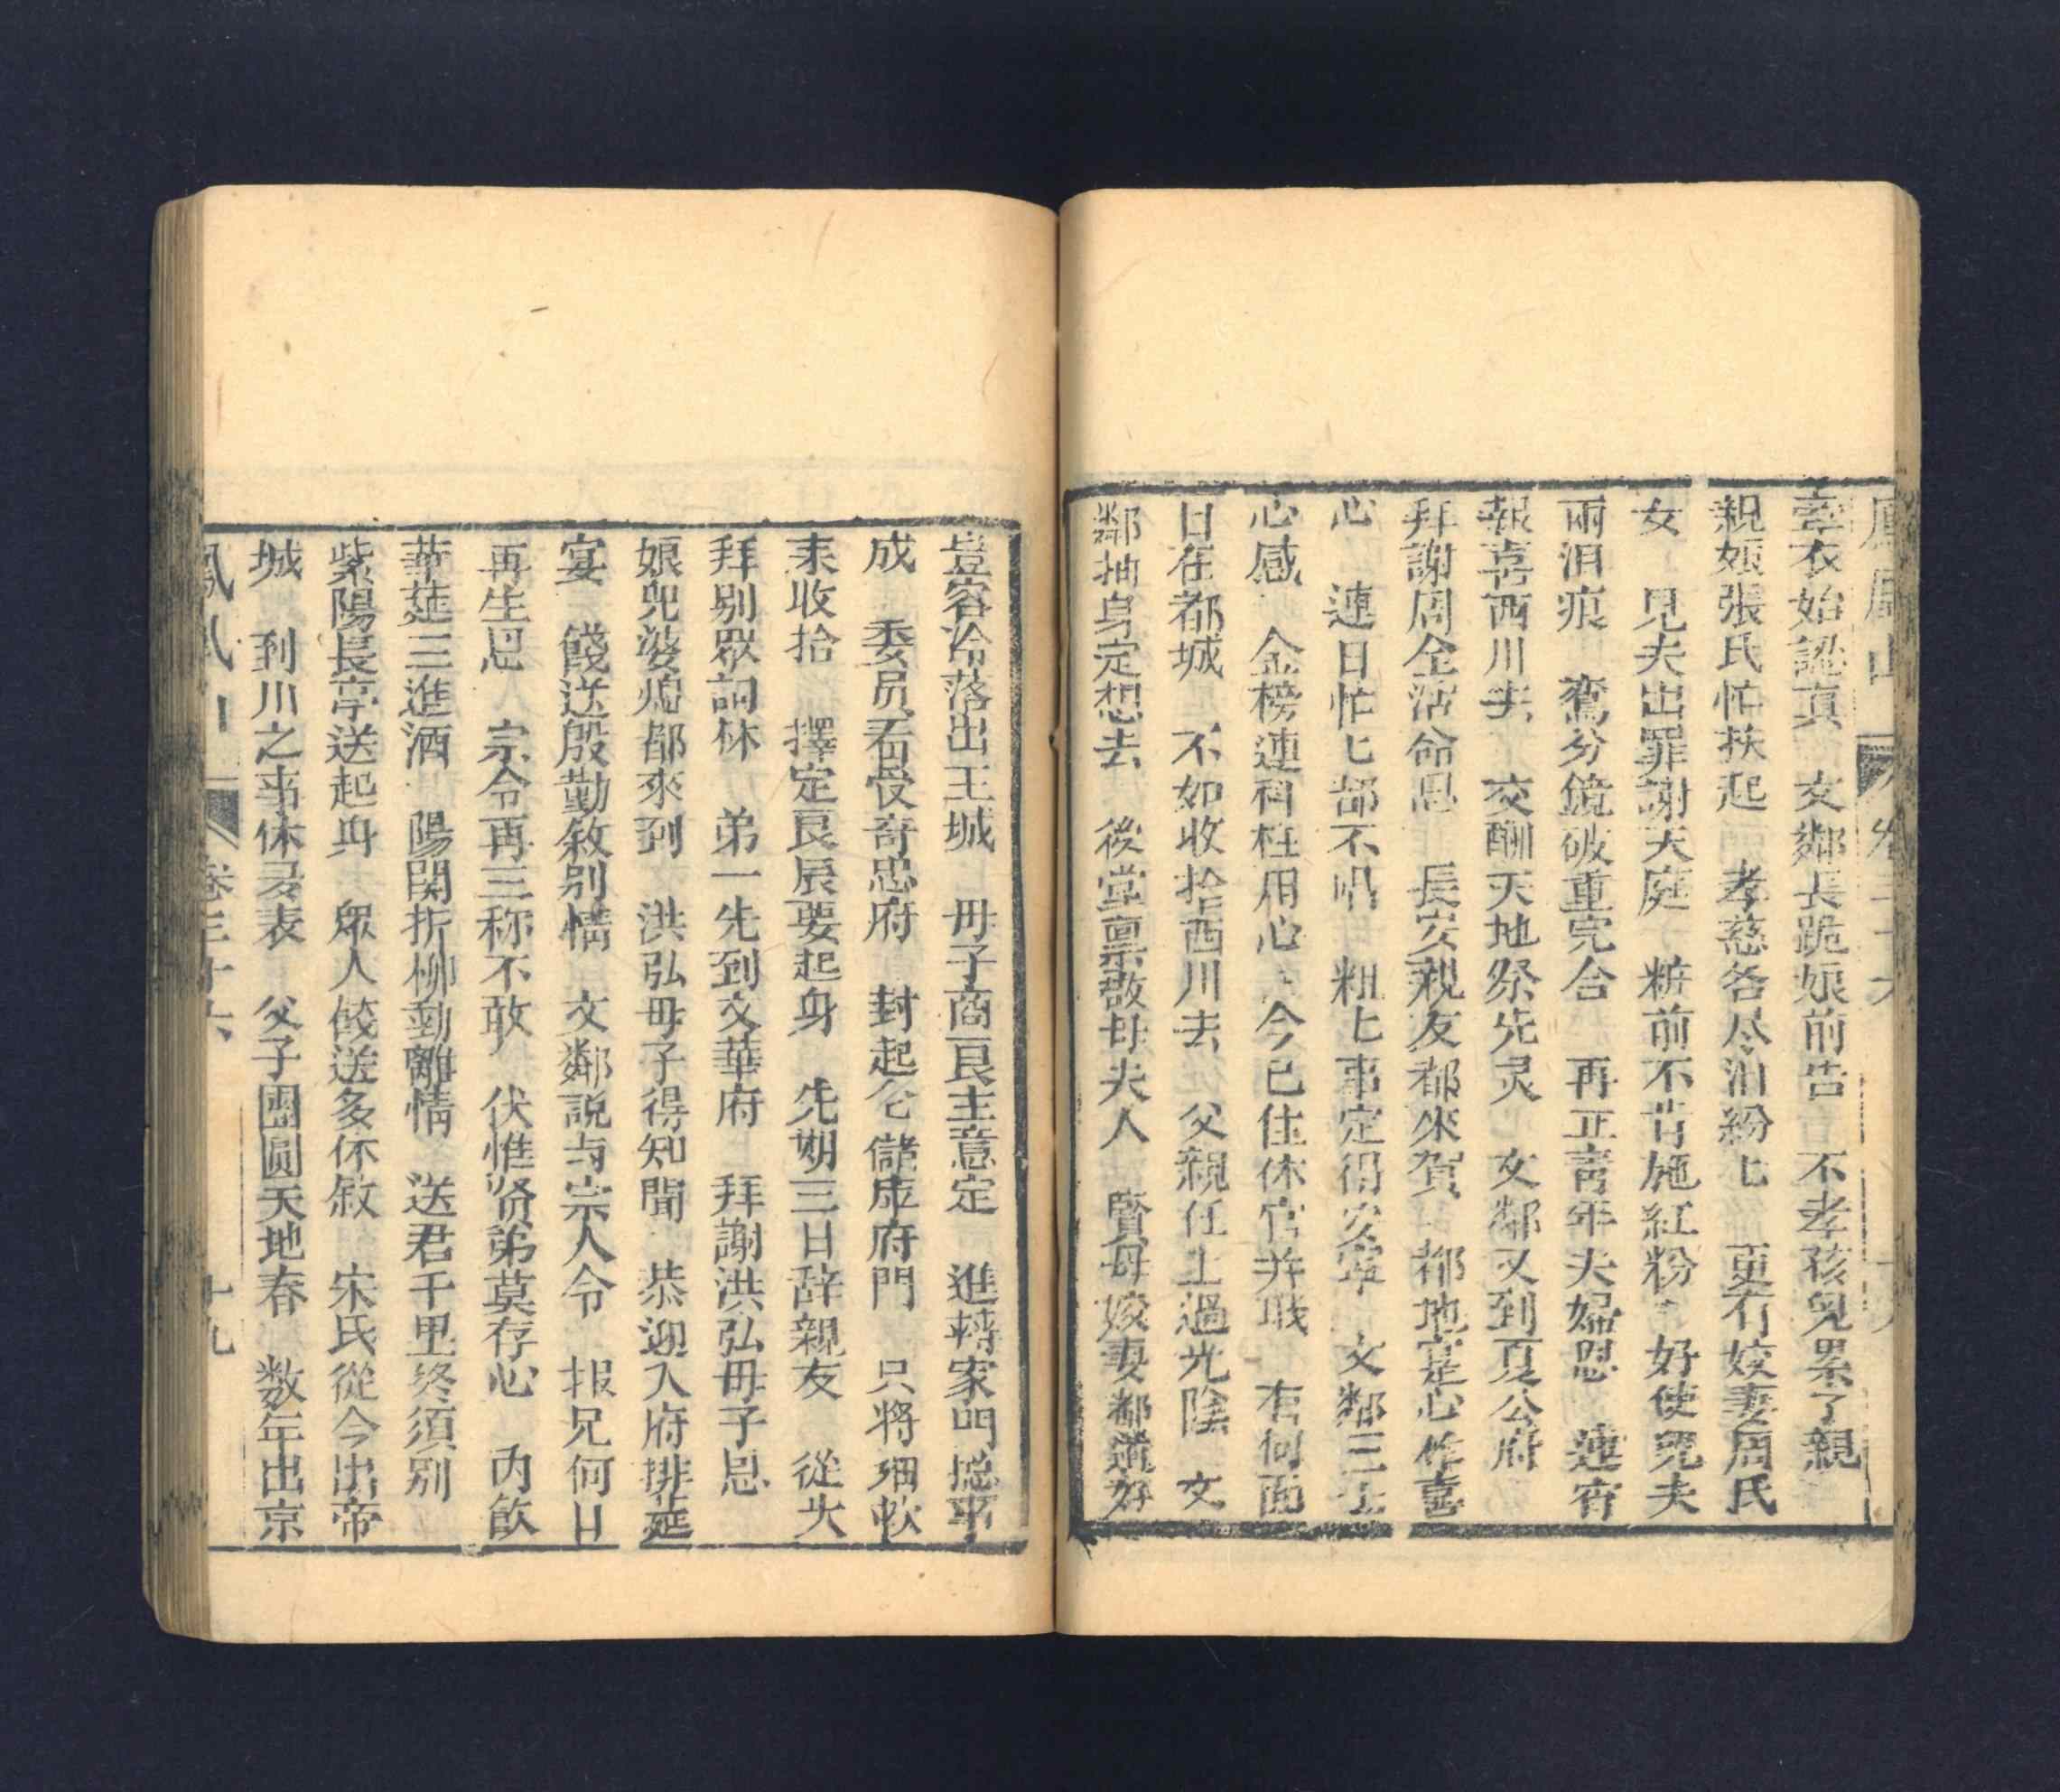 鳳凰山 卷三十六 十九
牽衣始認真 文鄰長跪娘前告 不孝孩兒累了親
親娘張氏忙扶起 孝慈各尽泪紛匕 更有姣妻周氏
女 見夫出罪謝天庭 粧前不肯施紅粉 好使兒夫
兩泪痕 鸞分鏡破重完合 再正青年夫婦恩 連宵
報喜西川去 文酬天地祭先灵 文鄰又到夏公府
拜謝周全活命恩 長安親友都來賀 都地定心作喜
心 連日忙匕部不唱 粗匕事定得安寧 文鄰三匕
心感 金榜連科枉用心 今已住休官并職 有何面
日在都城 不如收拾西川去 父親任上過光陰 文
鄰抽身定想去 後堂禀啟母夫人 賢母嫂妻都道好
豈容冷落出王城 母子商良主意定 進轉家門捴平
成 委员看受奇忠府 封起仓儲庫府門 只將細軟
来收拾 擇定良辰要起身 先期三日辞親友 從大
拜别眾詞林 弟一先到文華府 拜謝洪弘毋子恩
娘兒婆媳都來到 洪弘毋子得知聞 恭迎入府排筵
宴 餞送殷勤敘别情 文鄰説与宗人令 报兄何日
再生恩 宗令再三称不敢 伏惟贤弟莫存心 内飲
華筵三進酒 陽関折柳動離情 送君千里终須别
紫陽長亭送起身 眾人餞送多休敘 宋氏從今出帝
城 到川之事休灵表 父子團圓天地春 数年出京
鳳凰山 卷三十六 十九